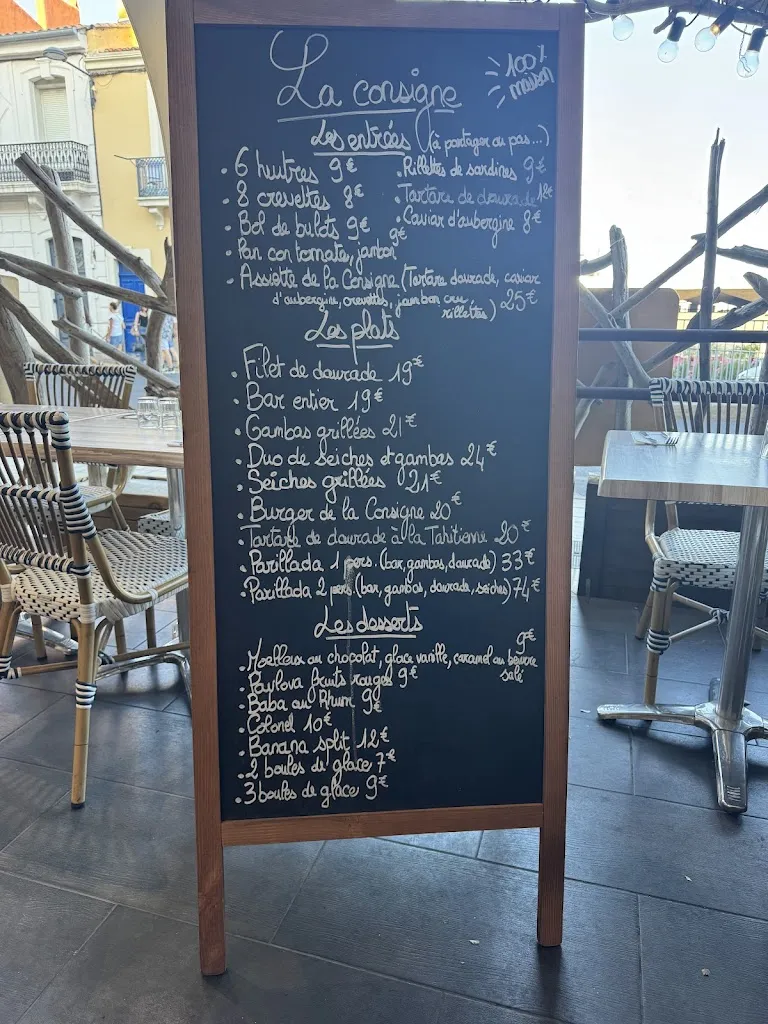 La consigne
100% maison
Les entrées (à partager ou pas...)
. 6 huîtres 9€
. 8 crevettes 8€
. Bol de bulots 9€
. Pan con tomate, jambon 9€
. Rillettes de sardines 9€
. Tartare de daurade
. Caviar d'aubergine 8€
. Assiette de la Consigne (Tartare daurade, caviar
d'aubergine, crevettes, jambon cru,
rillettes) 25€
Les plats
. Filet de daurade 19€
. Bar entier 19€
. Gambas grillées 21€
. Duo de seiches et gambas 24€
. Seiches grillées 21€
. Burger de la Consigne 20€
. Tartare de daurade à la Tahitienne 20€
. Parillada 1 pers. (bar, gambas, daurade) 33€
. Parillada 2 pers. (bar, gambas, daurade, seiches) 74€
Les desserts
. Moelleux au chocolat, glace vanille, caramel au beurre
salé 9€
. Pavlova fruits rouges 9€
. Baba au Rhum 9€
. Colonel 10€
. Banana split 12€
. 2 boules de glace 7€
. 3 boules de glace 9€